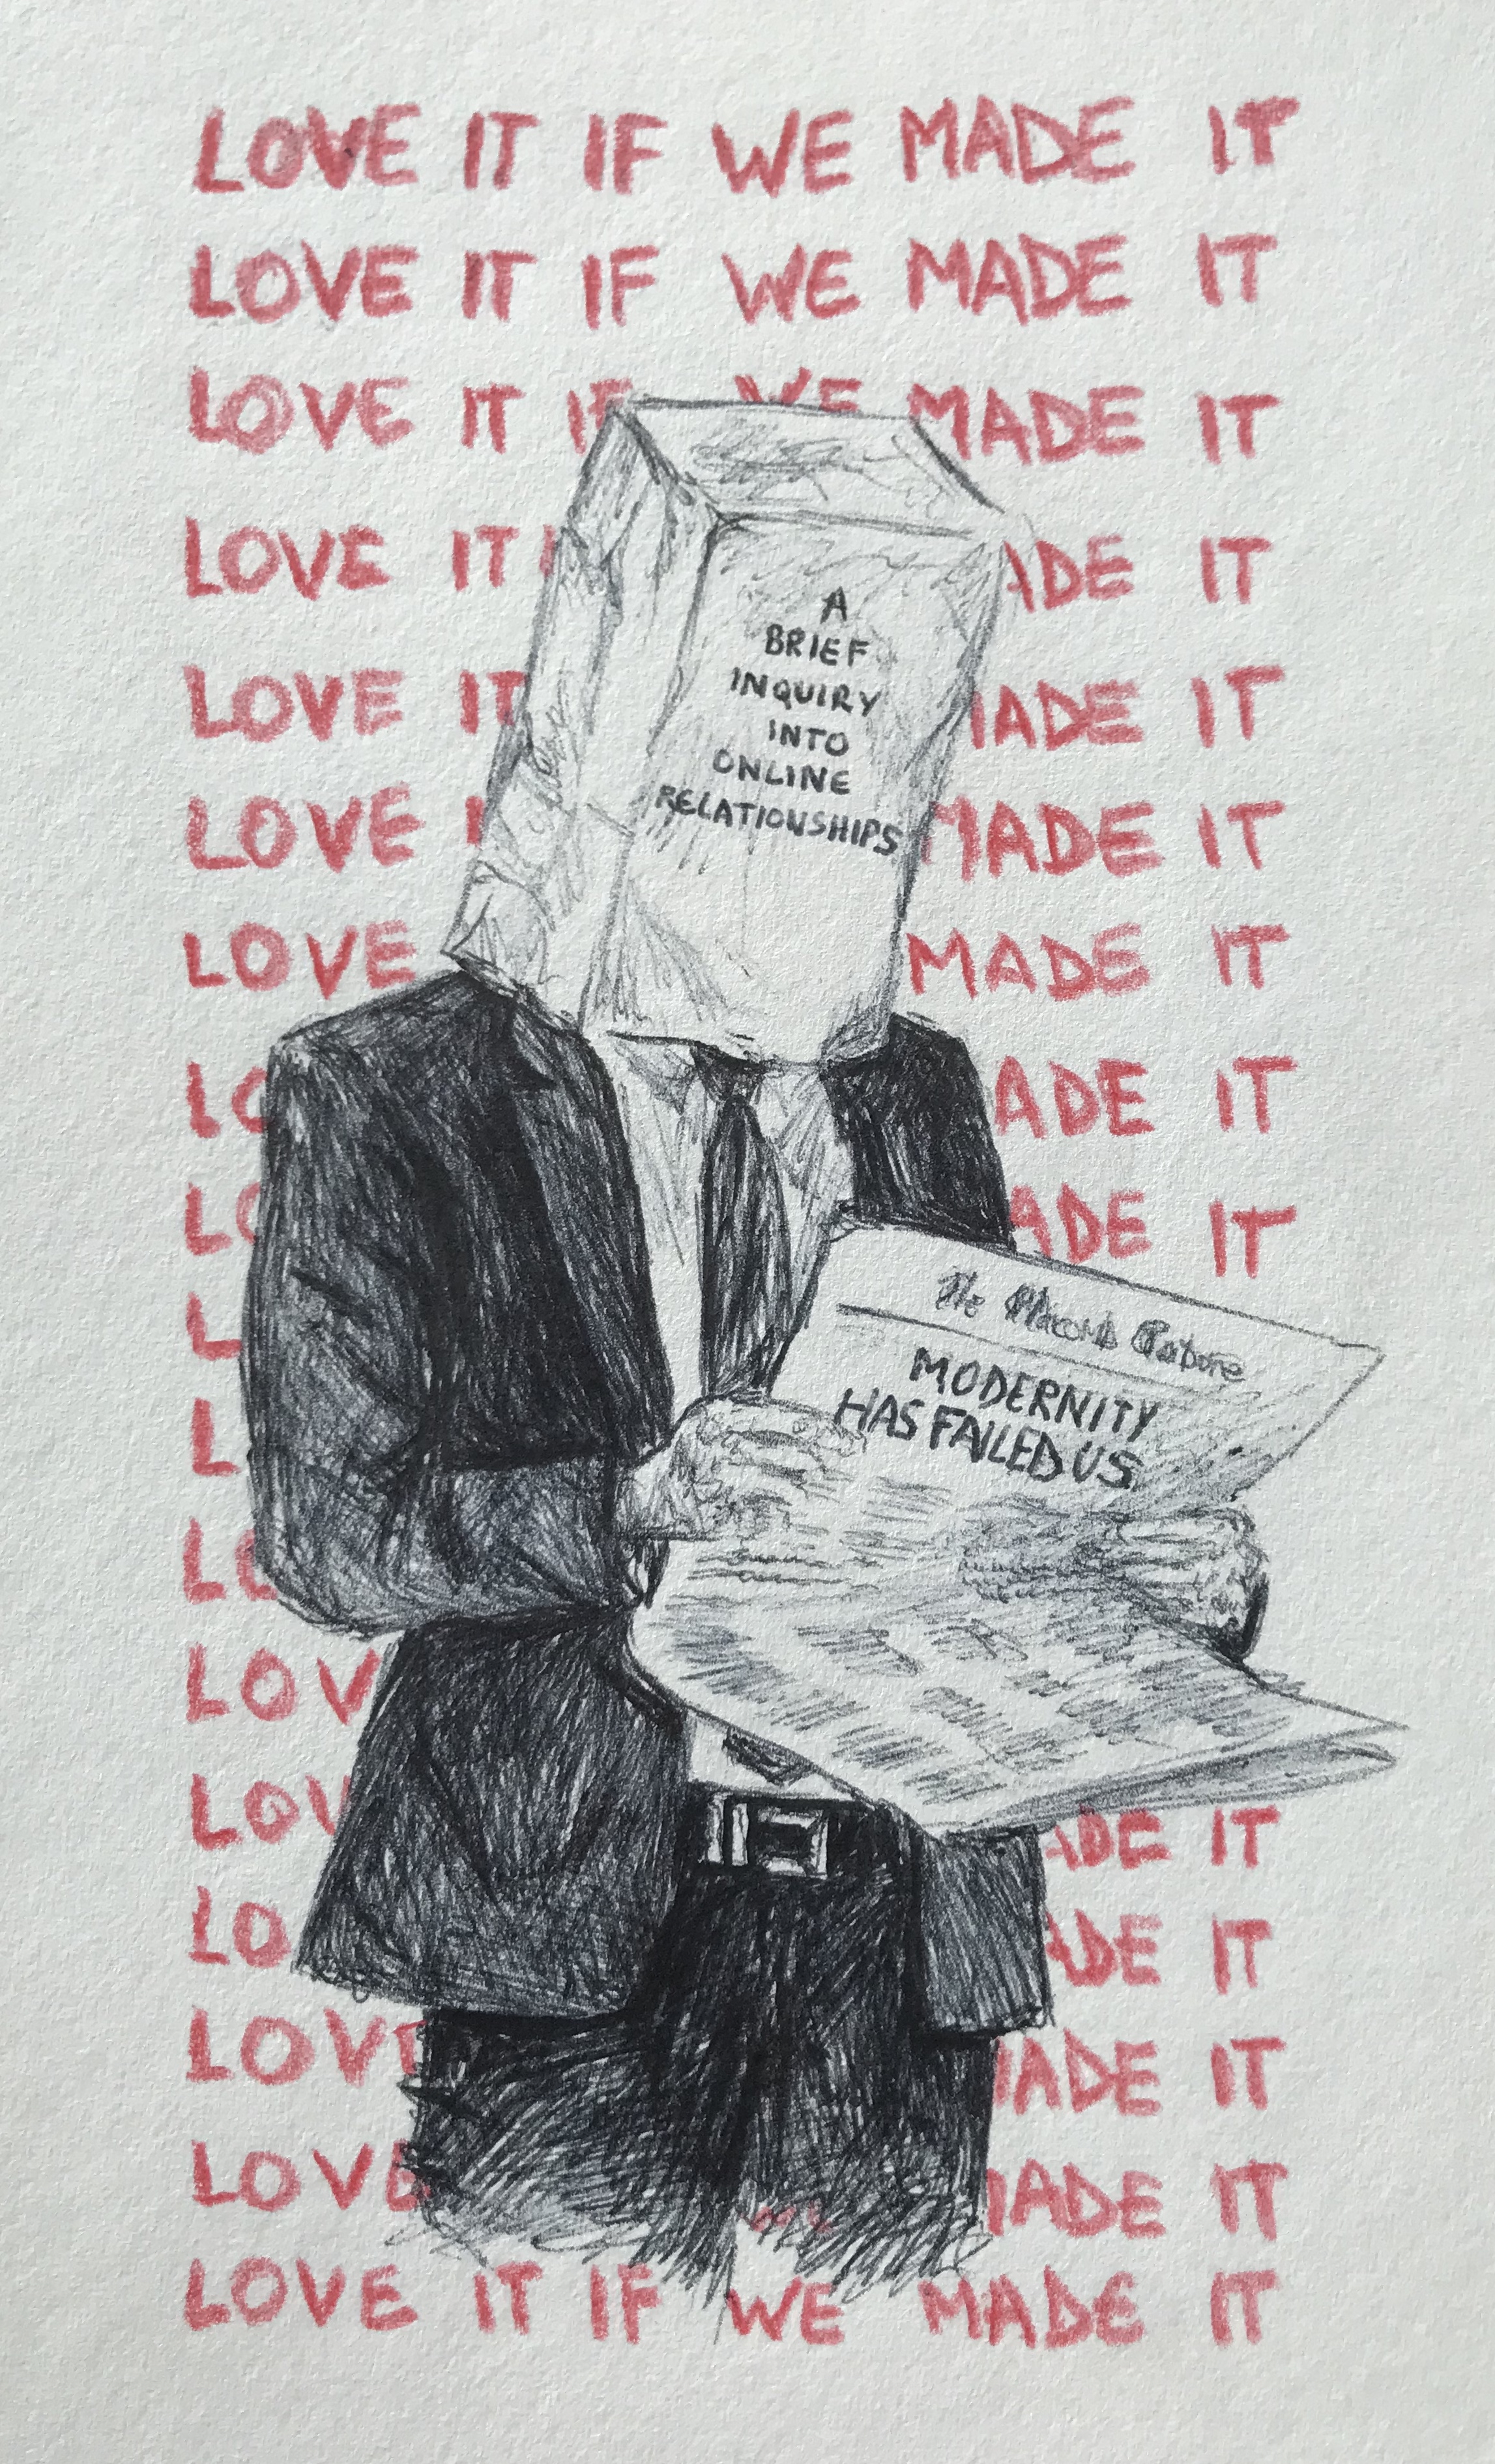 LOVE IT IF WE MADE IT
LOVE IT IF WE MADE IT
LOVE IT IF WE MADE IT
LOVE IT ADE IT
LOVE IT MADE IT
LOVE MADE IT
LOVE MADE IT
LO ADE IT
LO ADE IT
L
L
LO
LOV
LOV ADE IT
LO ADE IT
LOVE MADE IT
LOVE MADE IT
LOVE IT IF WE MADE IT
A
BRIEF
INQUIRY
INTO
ONLINE
RELATIONSHIPS
The
MODERNITY
HAS FAILED US